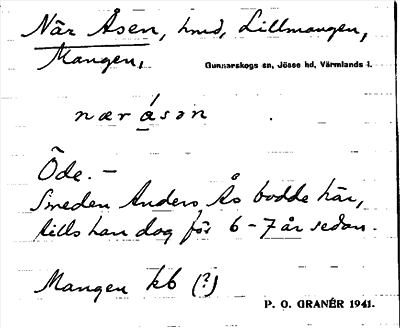 När Åsen, hmd, Lillmangen,
Mangen,
Gunnarskogs sn, Jösse hd, Värmlands l.
nær ǻsən
Öde. –
Smeden Anders Ås bodde här,
tills han dog för 6–7 år sedan.
Mangen kb (?)
P. O. GRANÉR 1941.